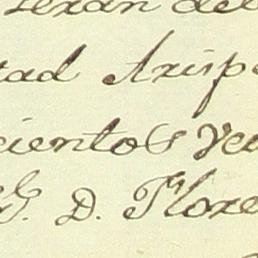 seran del
tad Arisp
cientos Ve
S. D. Flore